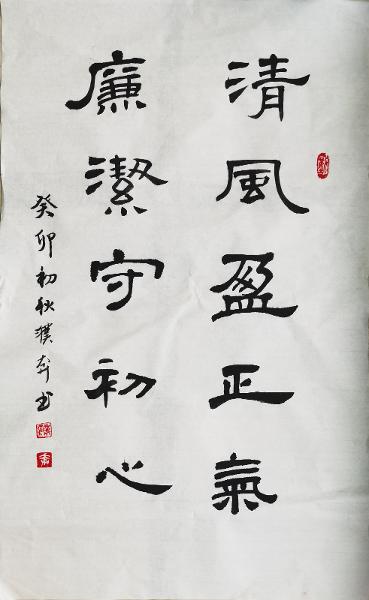 清風盈正氣
廉潔守初心
癸卯初秋濮奔书